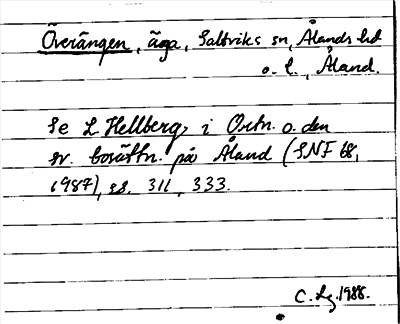 Överängen, äga, Saltviks sn, Ålands hd
o. l., Åland.
Se L Hellberg, i Ortn. o. den
sv. bosättn. på Åland (SNF 68,
1987), ss. 311, 333.
C. Lg. 1988.